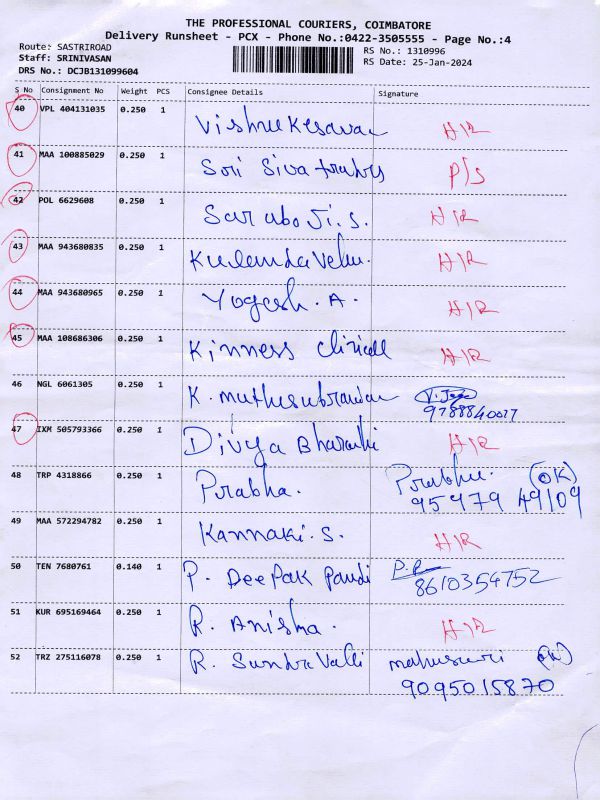 THE PROFESSIONAL COURIERS, COIMBATORE
Delivery Runsheet - PCX - Phone No.:0422-3505555 - Page No.:4
Route: SASTRIROAD
RS No.: 1310996
Staff: SRINIVASAN
RS Date: 25-Jan-2024
DRS No.: DCJB131099604
S No Consignment No Weight PCS Consignee Details Signature
40 VPL 404131035 0.250 1 Vishnu Kesavan H/R
41 MAA 100885029 0.250 1 Sori Siva P/S
42 POL 6629608 0.250 1 Sarabo Ji. S. H/R
43 MAA 943680835 0.250 1 Kulanda Velu. H/R
44 MAA 943680965 0.250 1 Yogesh . A . H/R
45 MAA 108686306 0.250 1 Kinness H/R
46 NGL 6061305 0.250 1 K. 
47 IXM 505793366 0.250 1 Divya Bharathi H/R
48 TRP 4318866 0.250 1 Prabha. Prabhu. (OK)
95979 49109
49 MAA 572294782 0.250 1 Kannaki. S. H/R
50 TEN 7680761 0.140 1 P. DeePak Pandi P.P
8610354752
51 KUR 695169464 0.250 1 R. Anisha. H/R
52 TRZ 275116078 0.250 1 R. Sundra Valli (OK)
9095015870